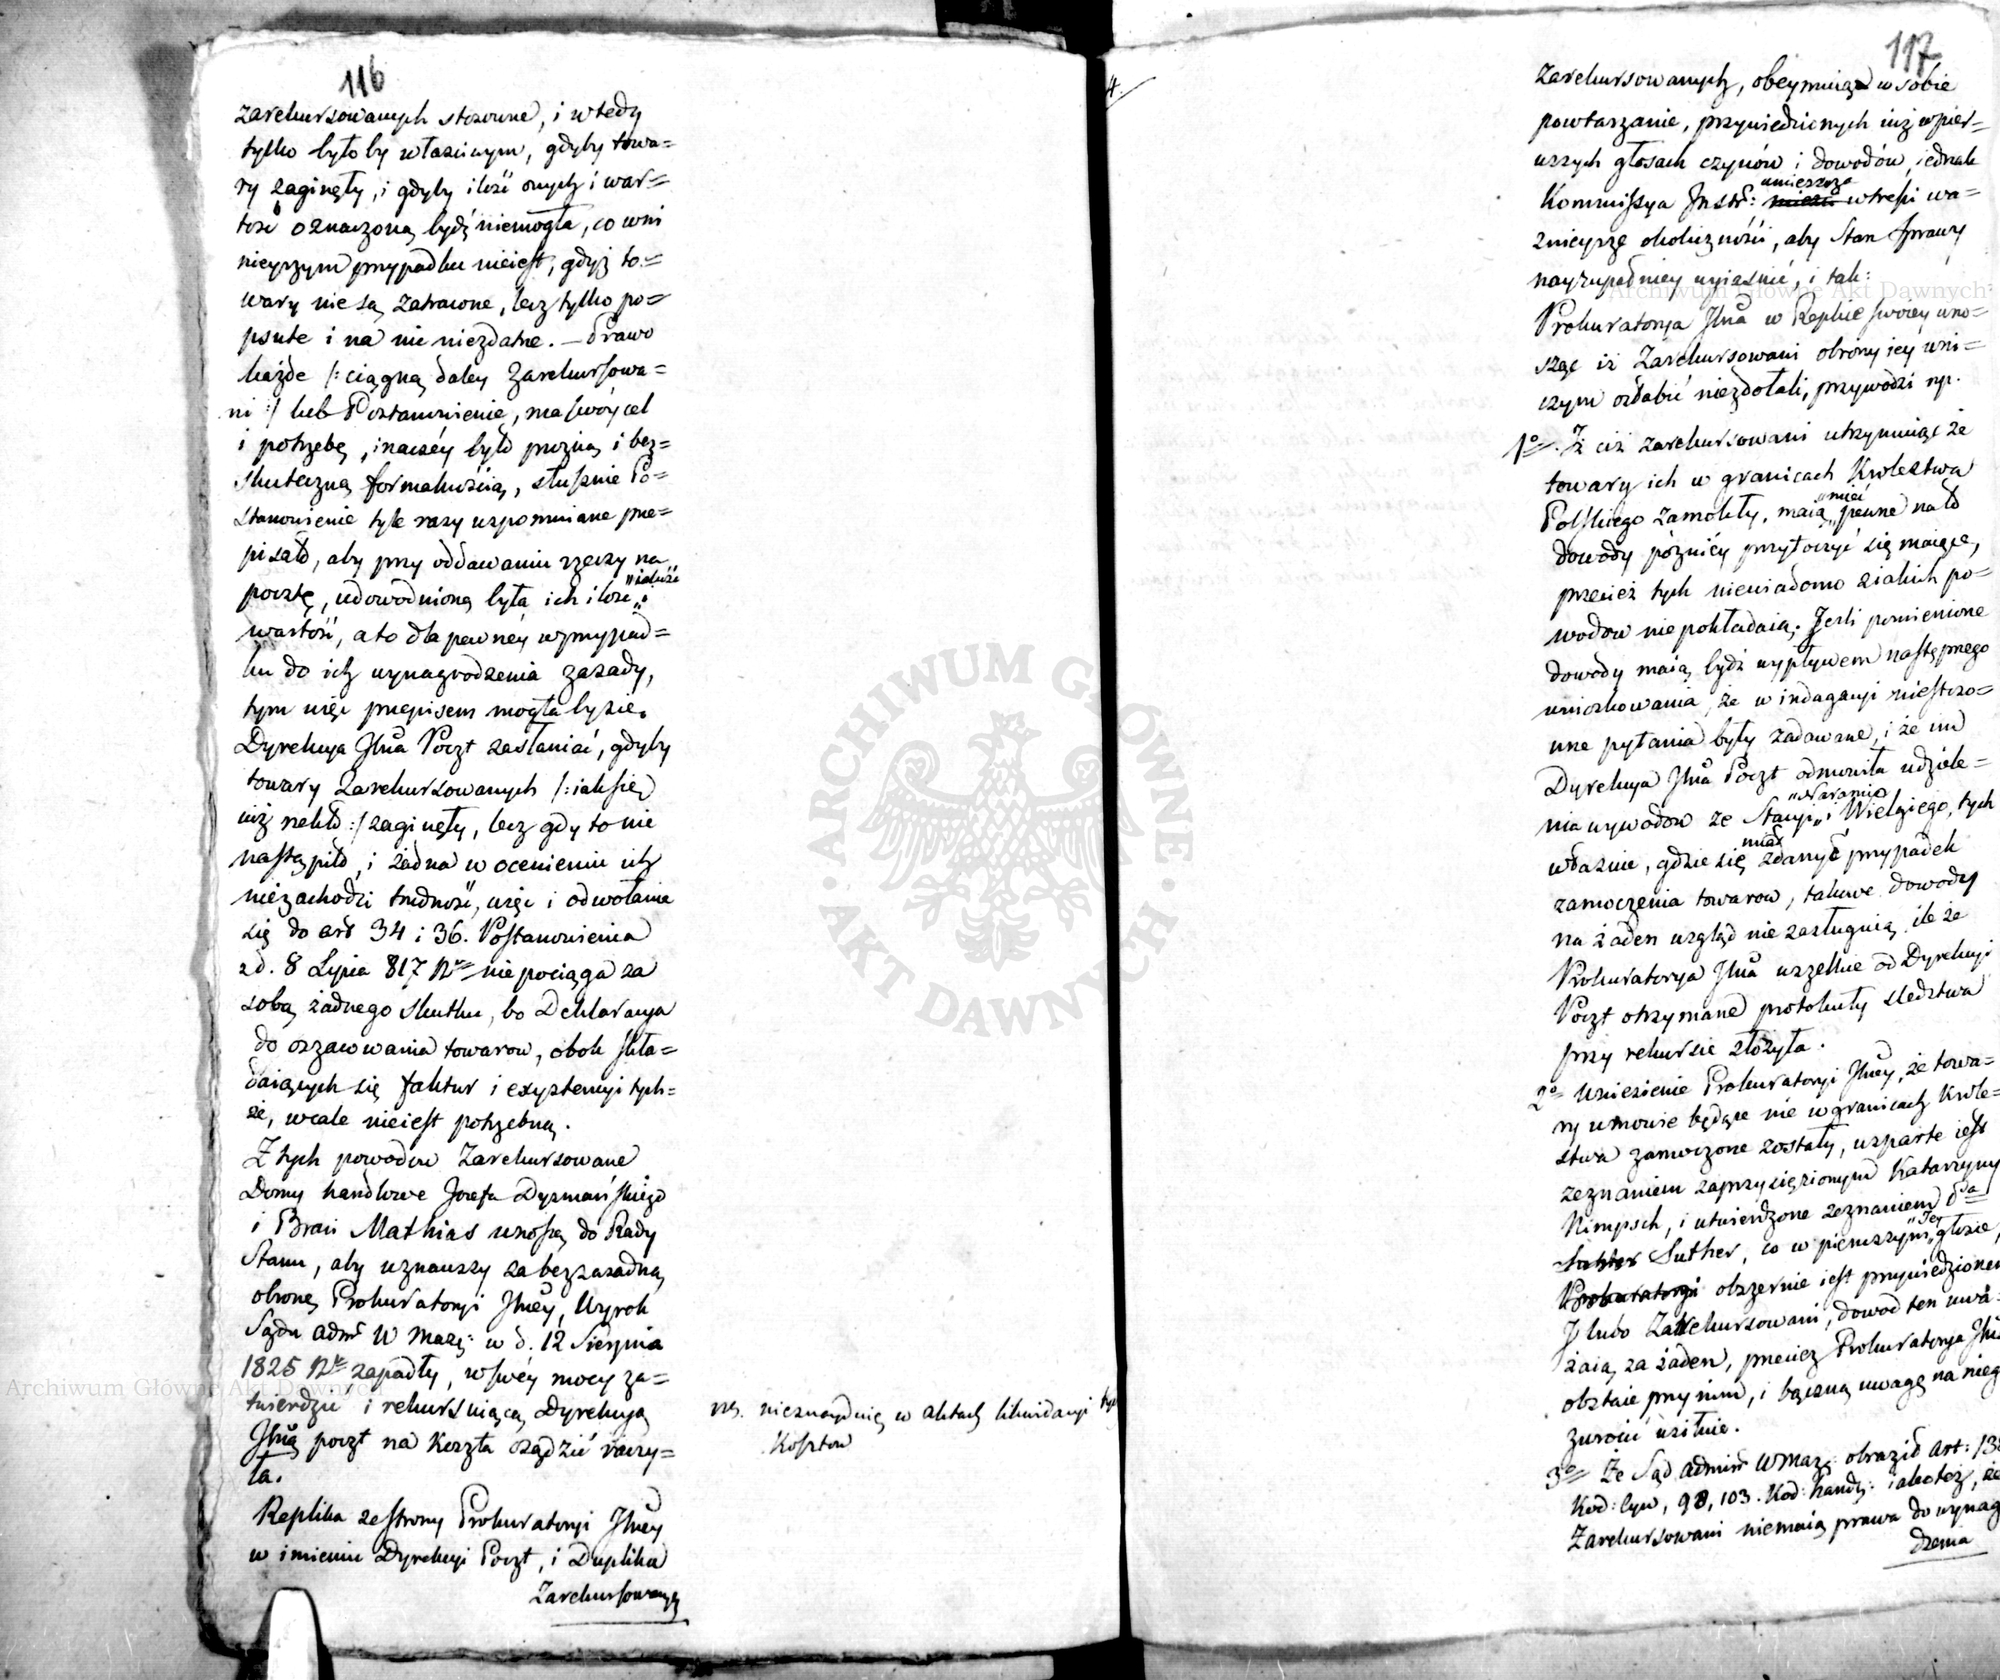 116
zarekursowanych stosowne, i wtedy
tylko byłoby właściwym, gdyby towa=
ry zaginęły, i gdyby ilość onych i war=
tość oznaczoną bydź niemogła, co wni
nieyszym przypadku nieiest, gdyż to=
wary nie są zatracone, lecz tylko po=
psute i na nic niezdatne. — Prawo
każde /: ciągną daley Zarekursowa=
ni :/ lub Postanowienie, ma swóy cel
i potrzebę, inaczéy było prożną i bez=
skuteczną formalnością, słusznie Po=
stanowienie tyle razy wspomniane prze=
pisało, aby przy oddawaniu rzeczy na
pocztę, udowodnioną była ich ilość „iakość i
wartość, a to dla pewnéy w przypad=
ku do ich wynagrodzenia zasady,
tym więc przepisem mogłaby się
Dyrekcya Jlna Poczt zasłaniać, gdyby
towary Zarekursowanych /: iak się
iuż rzekło :/ zaginęły, lecz gdy to nie
nastąpiło, i żadna w ocenieniu ich
niezachodzi trudność, więc i odwołanie
się do art 34 i 36. Postanowienia
z d. 8 Lipca 817 Rk nie pociąga za
sobą żadnego skutku, bo Deklaracya
do oszacowania towarow, obok skła=
daiących się faktur i exystencyi tych=
że, wcale nieiest potrzebną.
Z tych powodow Zarekursowane
Domy handlowe Jozefa Dyzmańskiego
i Braci Mathias wnoszą do Rady
Stanu, aby uznawszy za bezzasadną
obronę Prokuratoryi Jlney, Wyrok
Sądu Admł W Mazo: w d. 12 Sierpnia
1825 Rk zapadły, w swéy mocy za=
twierdzić i rekursuiącą Dyrekcyą
Jlną poczt na Koszta osądzić raczy=
ła.
Replika ze strony Prokuratoryi Jlney
w imieniu Dyrekcyi Poczt, i Duplika
Zarekursowanych
nieznayduię w aktach likwidacyi
Kosztow
117
4.
Zarekursowanych, obeymuiąc w sobie
powtarzanie, przywiedzionych iuż w pier=
wszych głosach czynów i dowodów, iednak
Kommissya Instr: umieszcza w treści wa=
znieysze okoliczności, aby Stan sprawy
nayzupełniey wyiaśnić, i tak:
Prokuratorya Jlna w Replice swoiey wno=
sząc iż Zarekursowani obrony iey wni=
czym osłabić niezdołali, przywodzi np.
1o Jż ciż zarekursowani utrzymuiąc że
towary ich w granicach Krolestwa
Polskiego zamokły, maią „mieć pewne na to
dowody później przytoczyć się maiące,
przecież tych niewiadomo z iakich po=
wodow niepokładaią. Jeśli pomienione
dowody maią bydź wypływem następnego
wnioskowania, że w indagacyi niestoso=
wne pytania były zadawane, i że im
Dyrekcya Jlna Poczt odmówiła udziele=
nia wywodow ze Stacyi „Naramic i Wielgiego, tych
właśnie, gdzie się miał zdarzyć przypadek
zamoczenia towarow, takowe dowody
na żaden wzgląd nie zasługuią ile że
Prokuratorya Jlna wszelkie od Dyrekcyi
Poczt otrzymane protokuły sledztwa
przy rekursie złożyła.
2o Wniesienie Prokuratoryi Jlney, że towa=
ry w mowie będące nie w granicach Krole=
stwa zamoczone zostały, wsparte iest
zeznaniem zaprzysiężonym Katarzyny
Nimpsch, i utwierdzone zeznaniem
Suther, co w pierwszym „Jey głosie,
obszernie iest przywiedzione
J lubo Zarekursowani, dowod ten uwa=
żaią za żaden, przecież Prokuratorya
obstaie przy nim, i baczną uwagę na nieg
zwrócić usilnie.
3o Że Sąd Admł W Mazo: obraził Art: 13
Kod: Cyw, 98, 103. Kod: handl: iakoteż, że
Zarekursowani niemaią prawa do wynag
dzenia